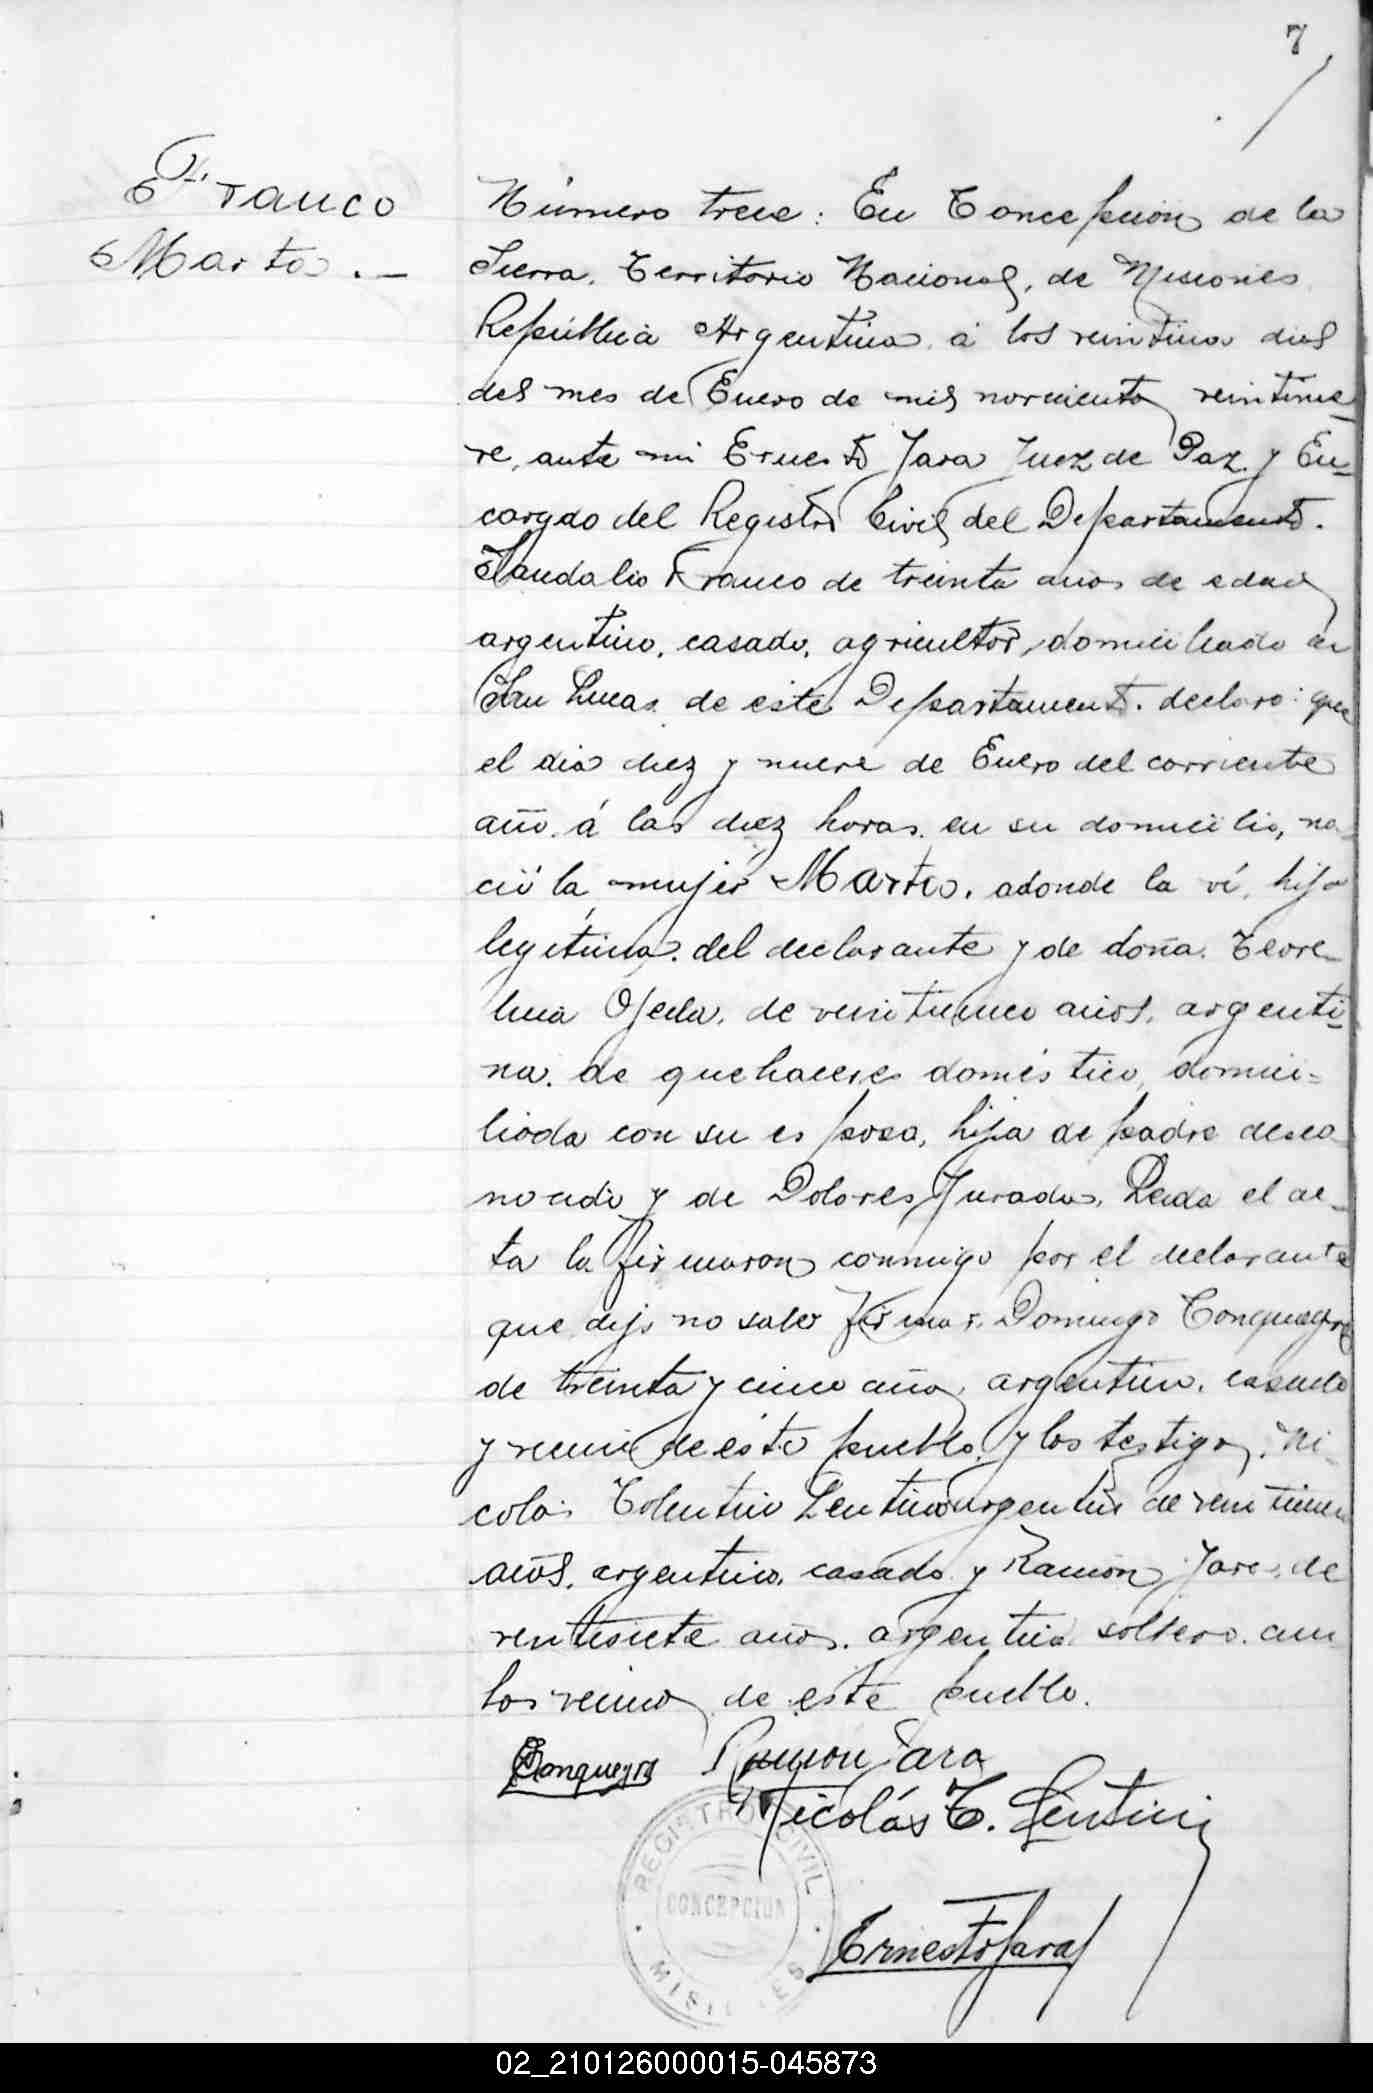 7
Franco
Marta. —
Número trece: En Concepción de la
Sierra, Territorio Nacional, de Misiones
República Argentina á los veintiun dias
del mes de Enero de mil novecientos veintinue-
ve, ante mi Ernesto Jara Juez de Paz y En-
cargado del Registro Civil del Departamento.
Landalio Franco de treinta años de edad
argentino, casado, agricultor, domiciliado en
San Lucas de este Departamento. declaró: que
el dia diez y nueve de Enero del corriente
año á las diez horas en su domicilio, na-
ció la mujer Marta. adonde la ví, hija
legítima del declarante y de doña
Ojeda, de veinticinco años, argenti-
na. de quehaceres doméstico, domici-
liada con su esposo, hija de padre desco-
nocido y de Dolores Jurado. Leida el ac-
ta la firmaron conmigo por el declarante
que dijo no saber firmar. Domingo
de treinta y cinco años, argentino, casado
y vecino de este pueblo, y los testigos, Ni-
colas Tolentino Lentini argentino de
años, argentino, casado y Ramón Jara, de
ventisiete años. argentino soltero. am
bos vecinos de este pueblo.
Ramón Jara
Nicolás T. Lentini
REGISTRO CIVIL
CONCEPCION
MISIONES
Ernesto Jara
02_210126000015-045873